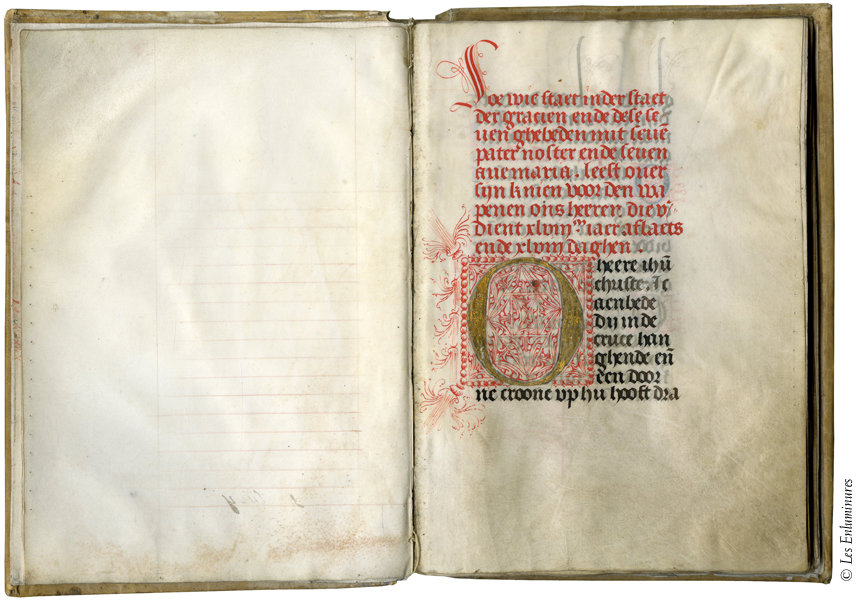 Soe wie staet in der staet
der gracien ende dese se
uen ghebeden mit seuē
pater noster ende seuen
aue maria. leest ouer
sijn knien voor den wa
penen ons heeren die v̄
dient xlvi iaer aflaets
ende xlvi daghen
O heere ihū
christe. Ic
aenbede
dij in de
cruce han
ghende en̄
een door
ne croone vp hu hooft dra
© Les Enluminures